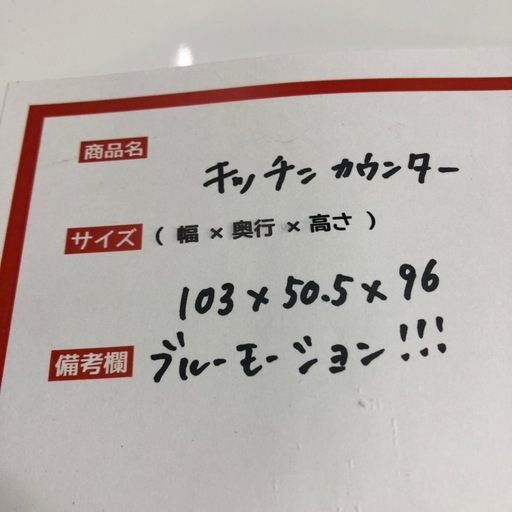 商品名
キッチンカウンター
サイズ ( 幅 × 奥行 × 高さ )
103×50.5×96
備考欄 ブルーモーション!!!